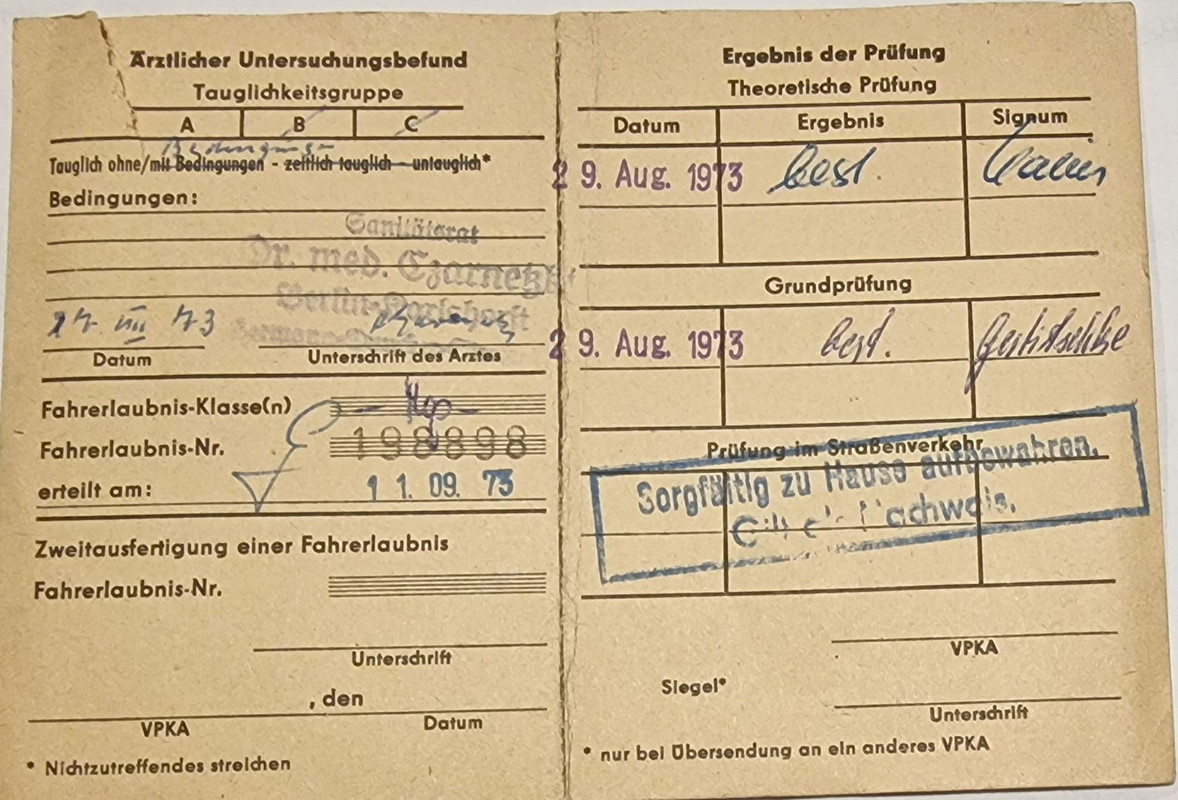 Ärztlicher Untersuchungsbefund
Tauglichkeitsgruppe
A B C
Bedingungen
Tauglich ohne/mit Bedingungen - zeitlich tauglich - untauglich*
Bedingungen:
Sanitätsrat
Dr. med. Czarnetzki
Berlin-Karlshorst
73
Datum Unterschrift des Arztes
Fahrerlaubnis-Klasse(n)
Fahrerlaubnis-Nr. 198898
erteilt am: 11.09.73
Zweitausfertigung einer Fahrerlaubnis
Fahrerlaubnis-Nr.
Unterschrift
, den
VPKA Datum
* Nichtzutreffendes streichen
Ergebnis der Prüfung
Theoretische Prüfung
Datum Ergebnis Signum
29. Aug. 1973 best.
Grundprüfung
29. Aug. 1973 best.
Prüfung im Straßenverkehr
Sorgfältig zu Hause aufbewahren.
Nachweis.
VPKA
Siegel*
Unterschrift
* nur bei Übersendung an ein anderes VPKA